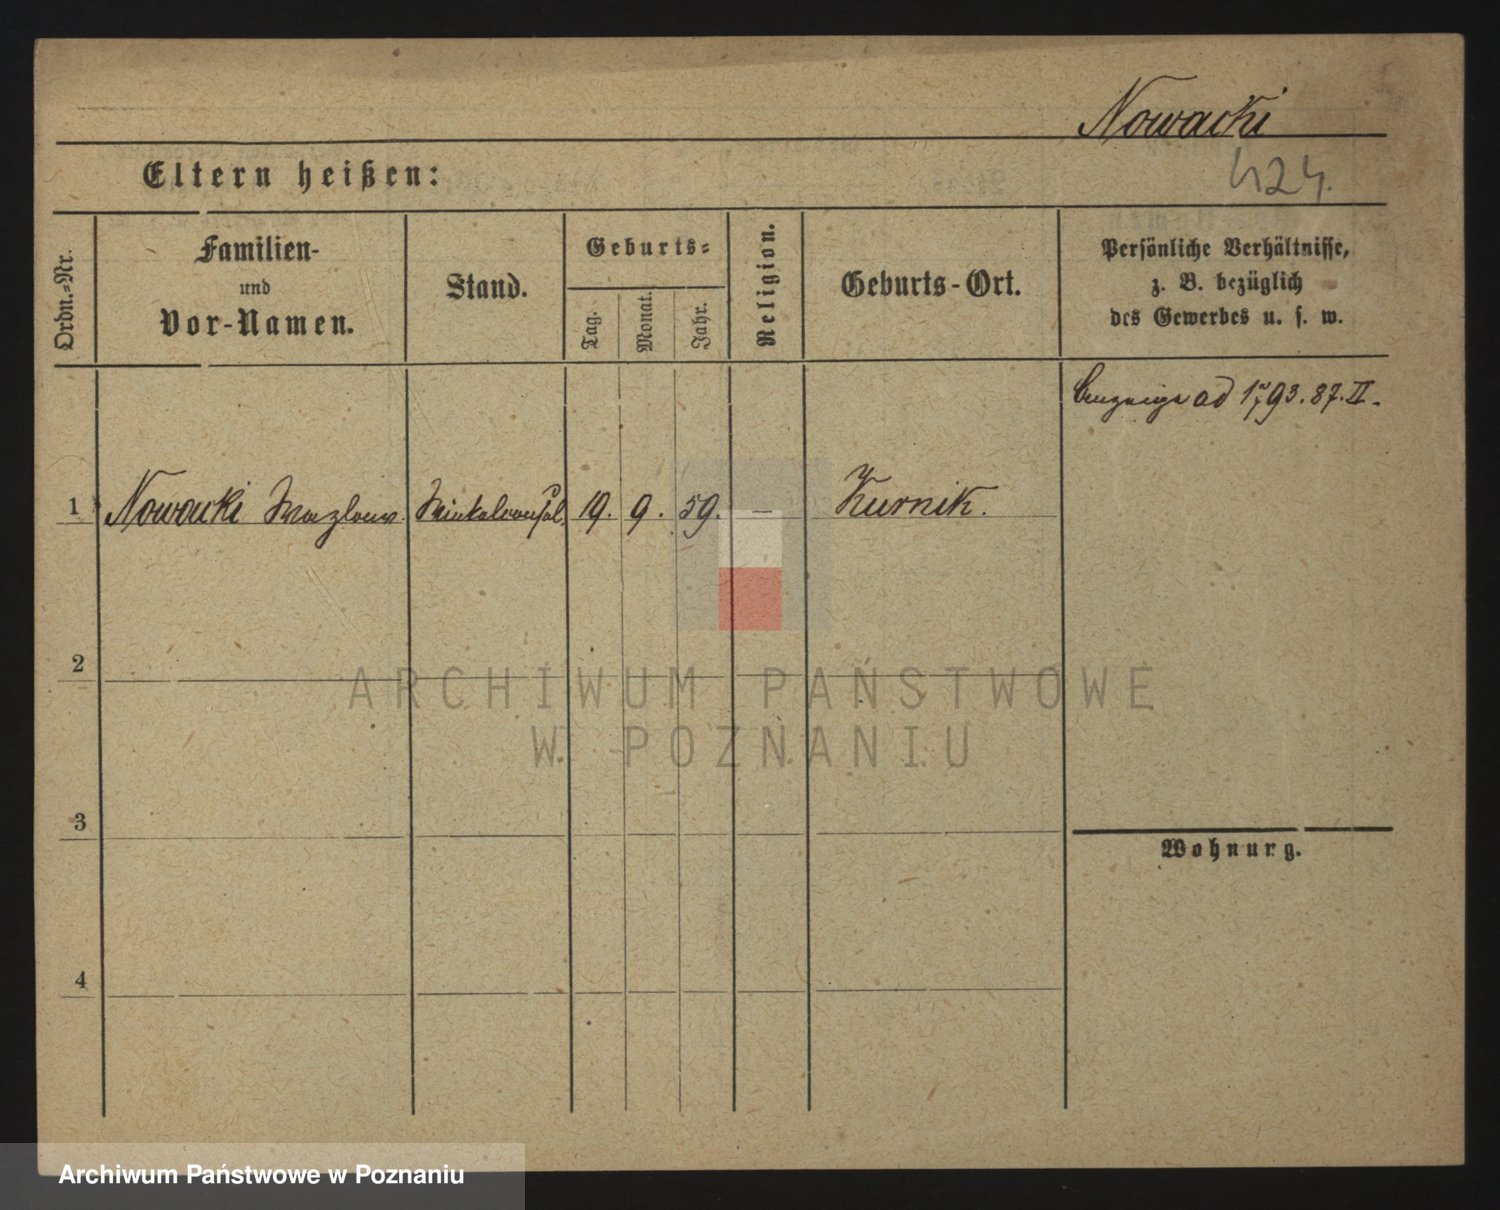 Nowacki
424.
Eltern heißen:
Ordn.-Nr.
Familien-
und
Vor-Namen.
Stand.
Geburts-
Tag.
Monat.
Jahr.
Religion.
Geburts-Ort.
Persönliche Verhältnisse,
z. B. bezüglich
des Gewerbes u. s. w.
Anzeige ad 1793. 87. II.
1 Nowacki Wazlaw. 19. 9. 59. – Kurnik.
2
3
4
Wohnung.
ARCHIWUM PAŃSTWOWE
W POZNANIU
Archiwum Państwowe w Poznaniu